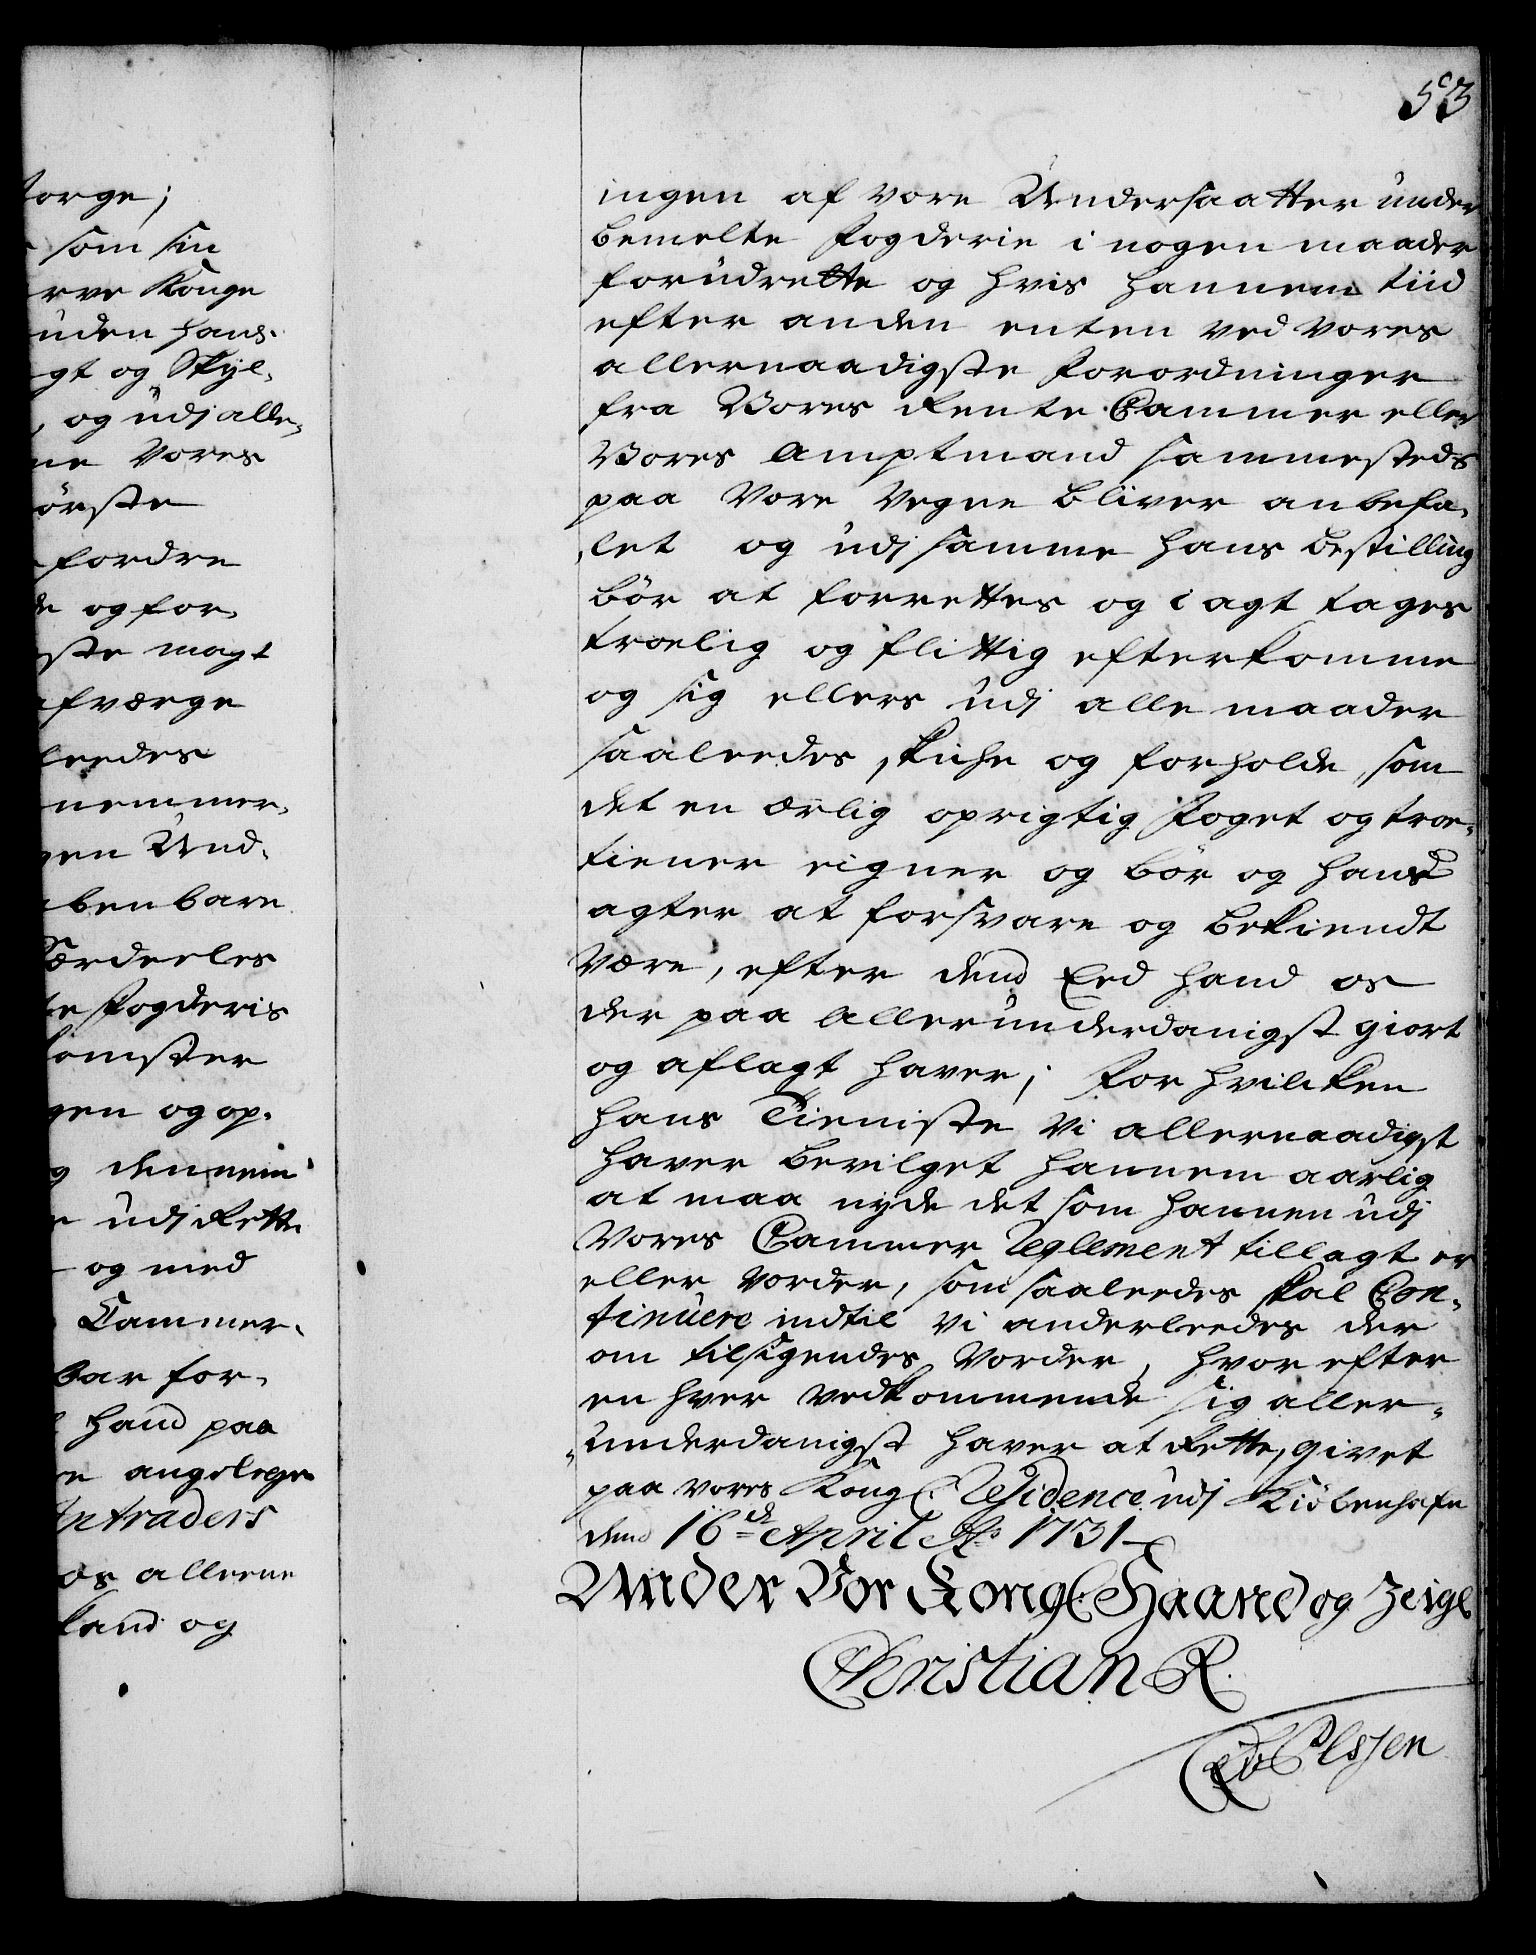 torge;
som sin
rve Konge
uden hans
gt og Skyl-
, og udj alle-
ne Vores
örste
fordre
de og for-
ste magt
fværge
leedes
nemmer-
gen Und-
benbare
Særdeeles
te Fogderis
komster
gen og op-
g dennem
udj Rette
og med
Cammer-
bar for-
hand paa
angelegen
Intraders
os allerene
land og
53
ingen af vore Undersaatter under
bemelte Fogderie i nogen maader
forudrette og hvis hannem tiid
efter anden enten ved vores
allernaadigste Forordninger
fra Vores Rente Cammer eller
Vores Amptmand sammesteds
paa Vore Vegne bliver anbefa-
-let og udj samme hans bestilling
bör at forrettes og i agt tages
troelig og flittig efterkomme
og sig ellers udj alle maader
saaleedes skiche og forholde som
det en ærlig oprigtig Foget og troe-
tiener eigner og bör og hand
agter at forsvare og bekiendt
Være, efter dend Eed hand os
der paa allerunderdanigst giort
og aflagt haver; For hvilcken
hans Tieniste Vi allernaadigst
haver bevilget hannem aarlig
at maa nyde det som hannem udj
Vores Cammer Reglement tillagt er
eller Vorder, som saaleedes skal Con-
tinuere indtil Vi anderleedes der
om tilsigendes Vorder, hvor efter
en hver vedkommende sig aller-
-underdanigst haver at Rette, givet
paa vores Kongl. Residence udj Kiöbenhafn
dend 16de April Ao 1731
Under Vor Kongl. Haand og Zeigl
Christian R.